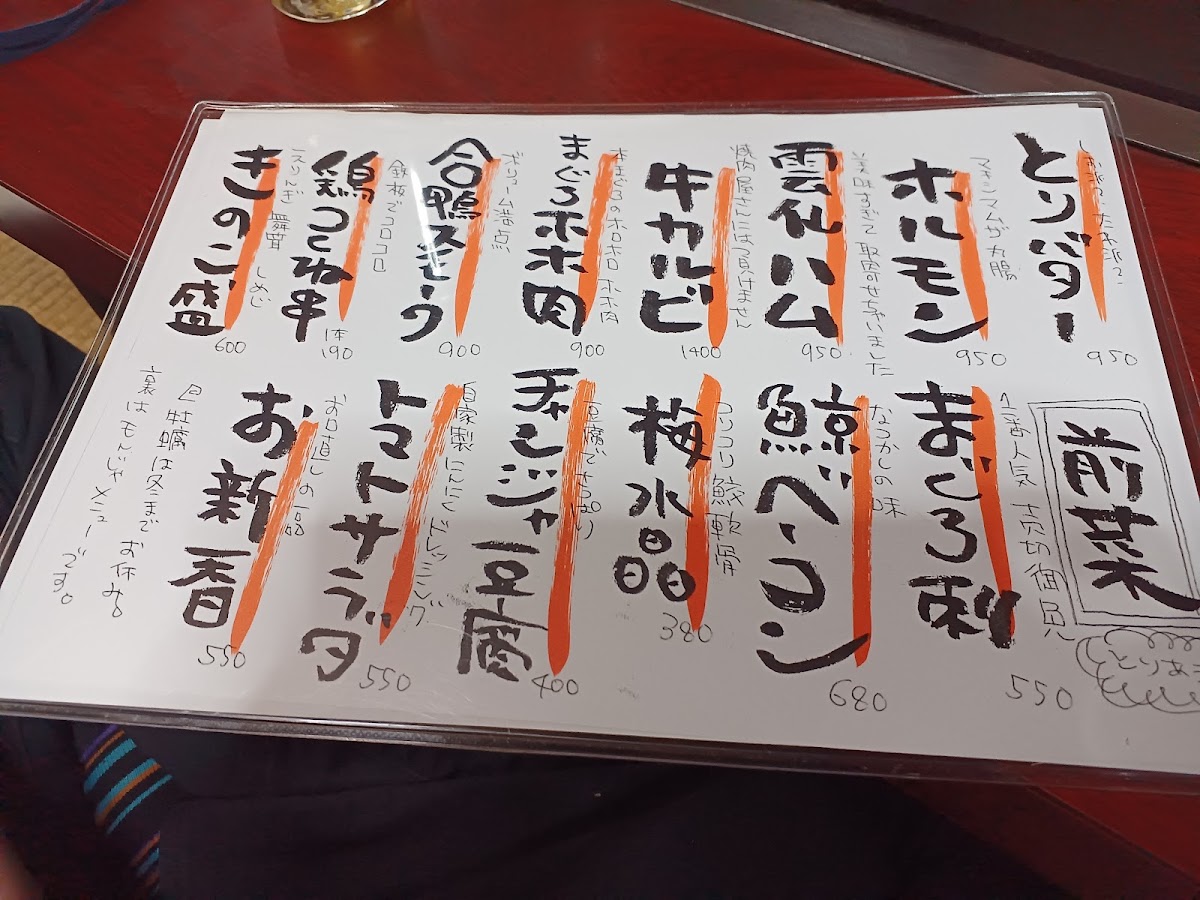 とりバター
しお派? たれ派?
950
ホルモン
マキシマムザ丸腸
950
雲仙ハム
美味すぎて取寄せちゃいました
950
牛カルビ
焼肉屋さんには負けません
1400
まぐろホホ肉
本まぐろのホロホロホホ肉
900
合鴨スモーク
ボリューム満点
900
鶏つくね串
鉄板でコロコロ
1本
190
きのこ盛
エリんぎ 舞茸 しめじ
600
前菜
とりあえ
まぐろ刺
一番人気 売切御免
550
鯨ベーコン
なつかしの味
680
梅水晶
コリコリ鮫軟骨
380
チャンジャ豆腐
豆腐でさっぱり
400
トマトサラダ
自家製にんにくドレッシング
550
お新香
お口直しの一品
550
牡蠣は冬までお休み。
裏はもんじゃメニューです。